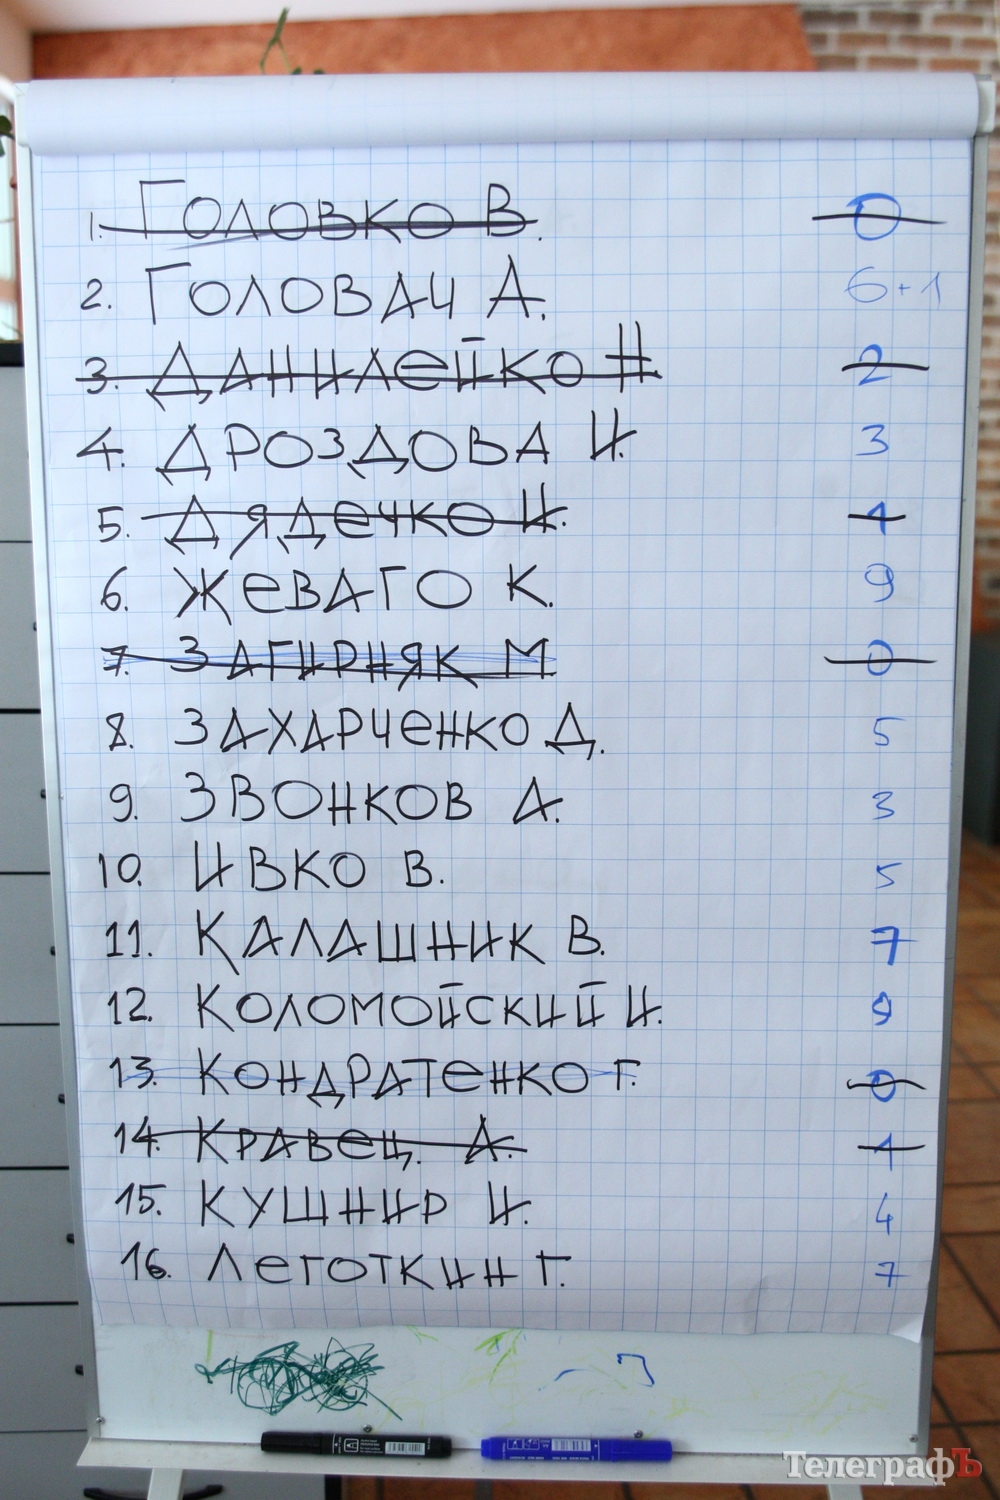 1. Головко В. 0
2. Головач А. 6+1
3. Данилейко Н 2
4. Дроздова И. 3
5. Дядечко И. 1
6. Жеваго К. 9
7. Загирняк М 0
8. Захарченко Д. 5
9. Звонков А. 3
10. Ивко В. 5
11. Калашник В. 7
12. Коломойский И. 9
13. Кондратенко Г. 0
14. Кравец. А. 1
15. Кушнир И. 4
16. Леготкин Г. 7
ТелеграфЪ